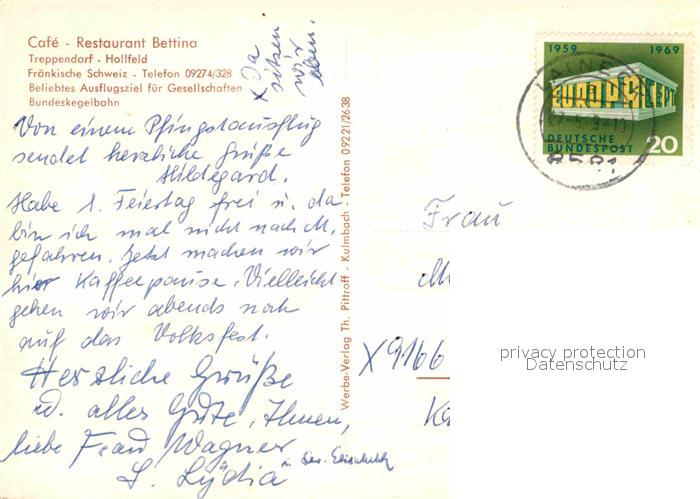 Café - Restaurant Bettina
Treppendorf - Hollfeld
Fränkische Schweiz - Telefon 09274/328
Beliebtes Ausflugsziel für Gesellschaften
Bundeskegelbahn
x Da
sitzen
wir
eben.
Von einem Pfingstausflug
sendet herzliche Grüße
Hildegard.
Habe 1. Feiertag frei u. da
bin ich mal nicht nach M.
gefahren. Jetzt machen wir
hier Kaffeepause. Vielleicht
gehen wir abends noch
auf das Volksfest.
Herzliche Grüße
u. alles Gute, Ihnen,
liebe Frau Wagner
S. Lydia
Werbe-Verlag Th. Pittroff - Kulmbach - Telefon 09221/2638
1959 1969
EUROPA CEPT
DEUTSCHE
BUNDESPOST
20
Frau
M
X 9166
Ka
privacy protection
Datenschutz